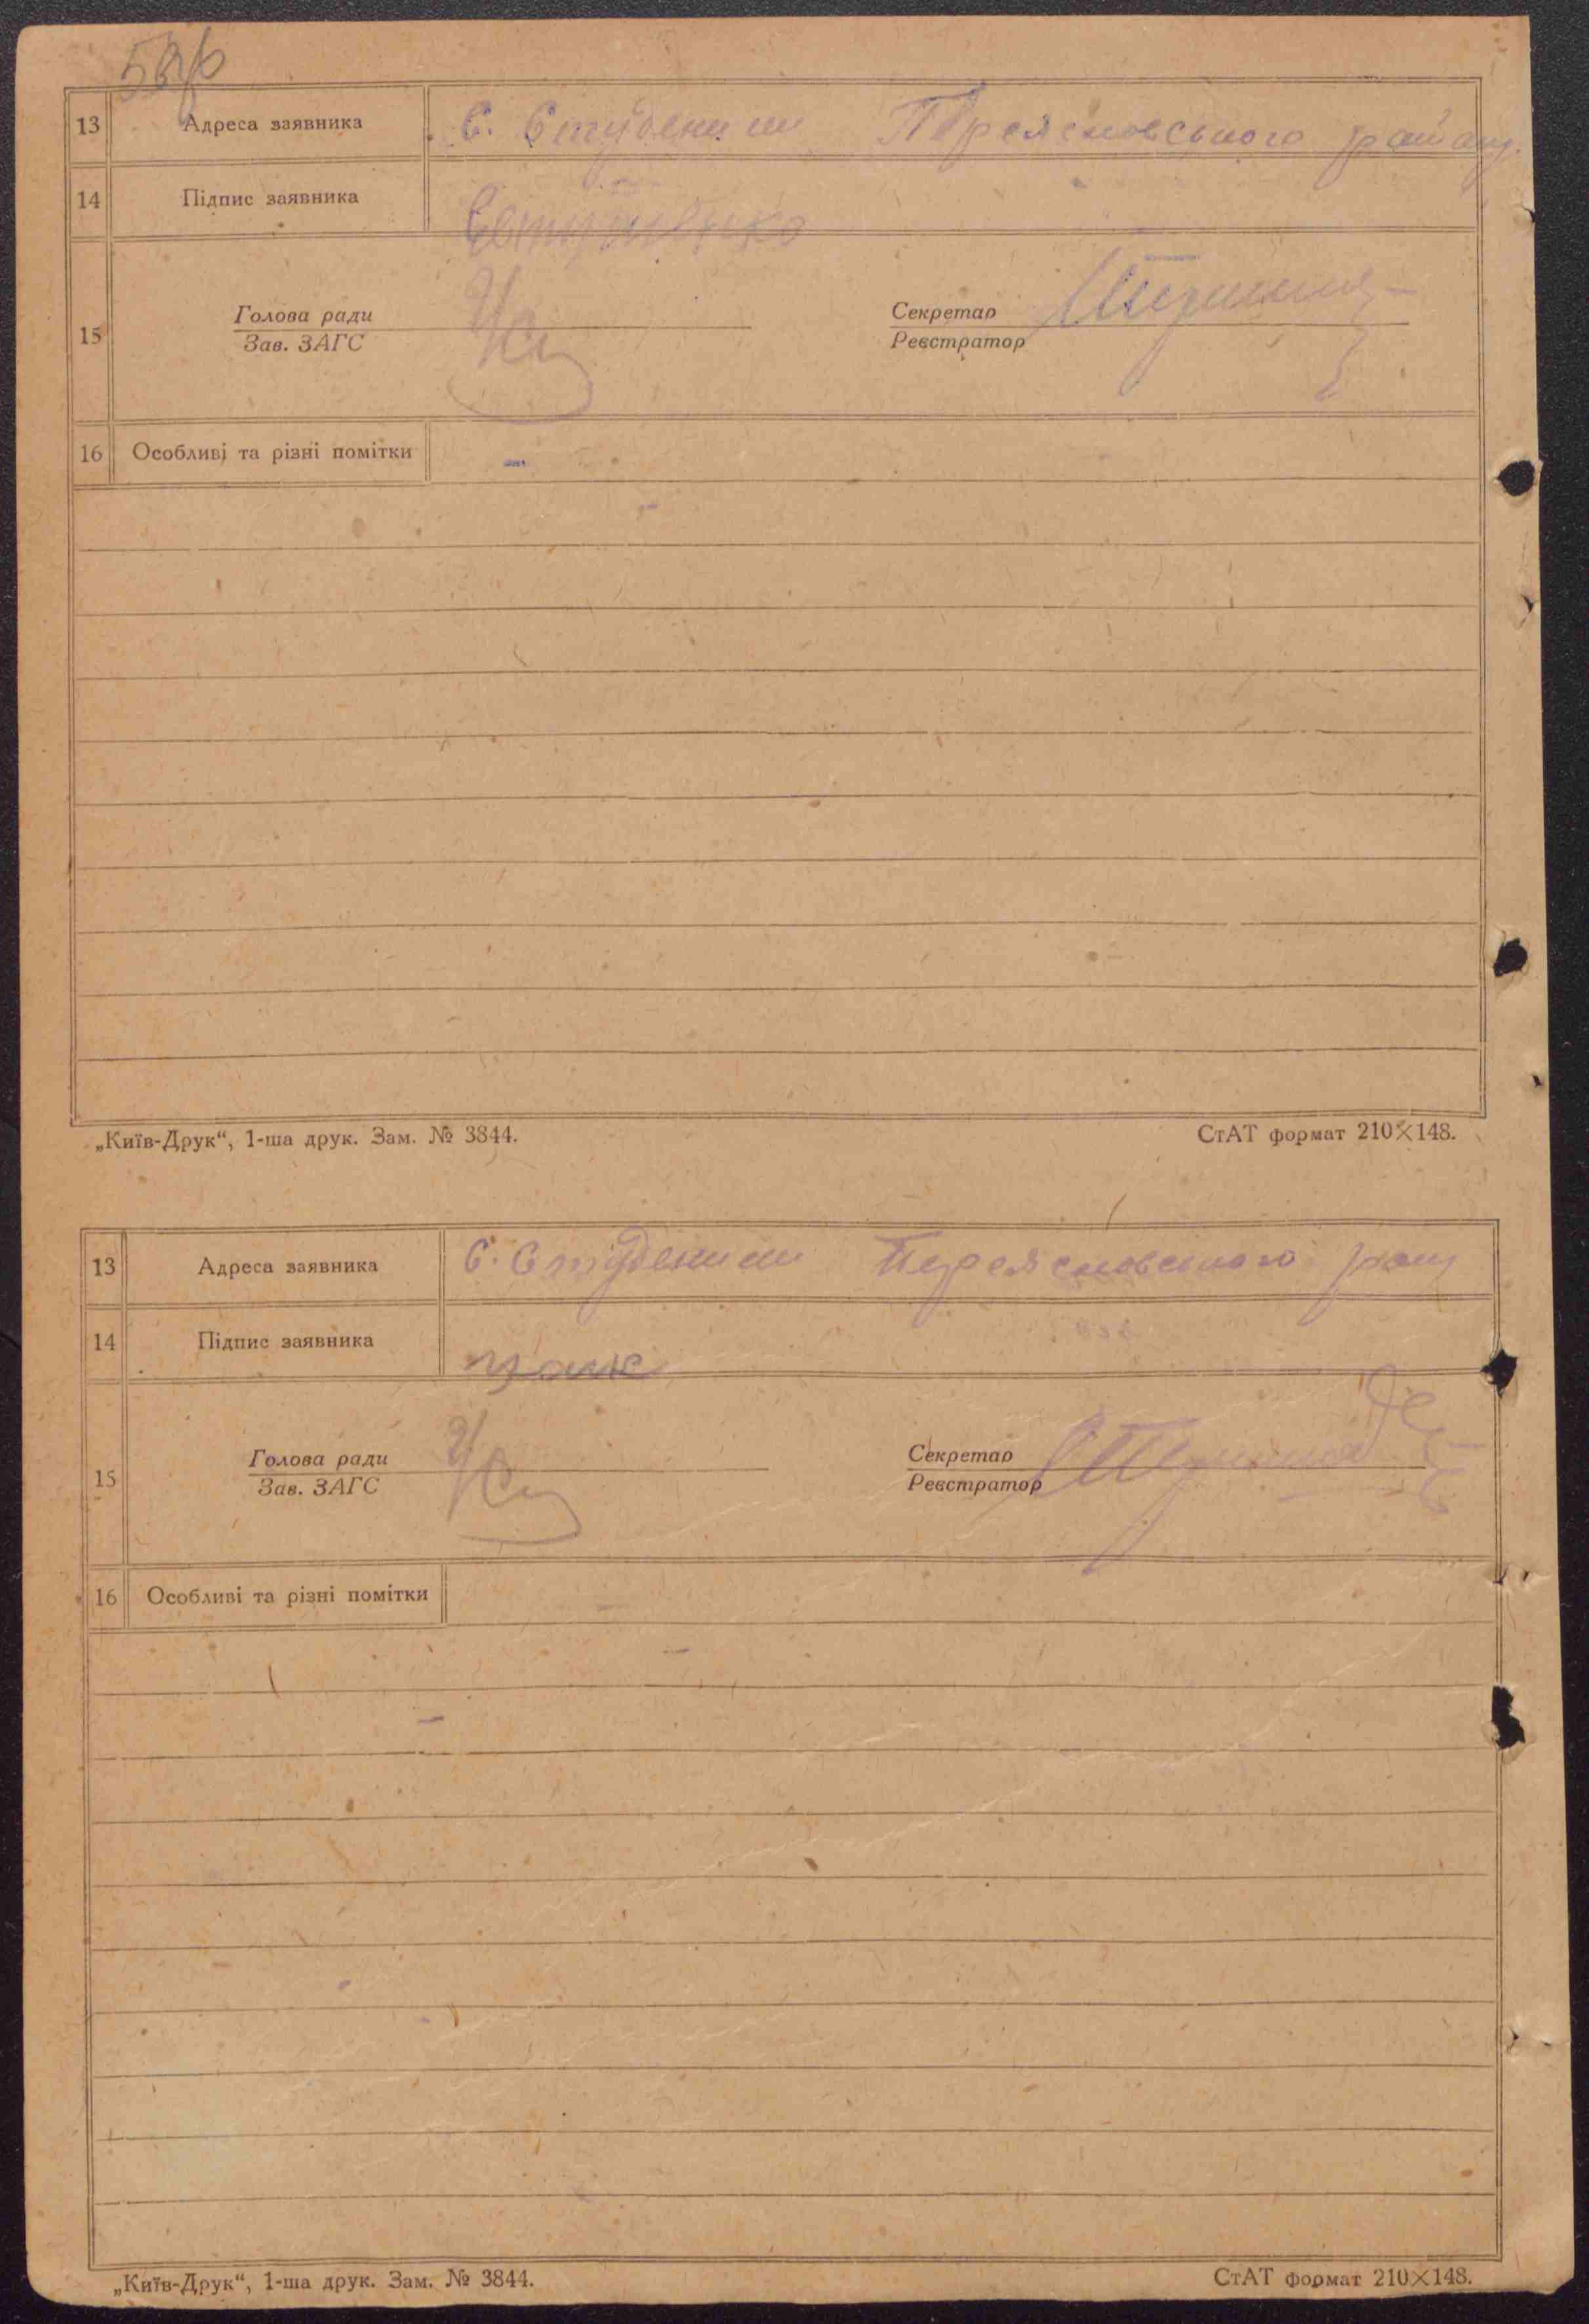 13 Адреса заявника С. Студеники Переяславського району
14 Підпис заявника
15 Голова ради Секретар
Зав. ЗАГС Реєстратор
16 Особливі та різні помітки
„Київ-Друк“, 1-ша друк. Зам. № 3844. СтАТ формат 210×148.
13 Адреса заявника С. Студеники Переяславського
14 Підпис заявника
15 Голова ради Секретар
Зав. ЗАГС Реєстратор
16 Особливі та різні помітки
„Київ-Друк“, 1-ша друк. Зам. № 3844. СтАТ формат 210×148.